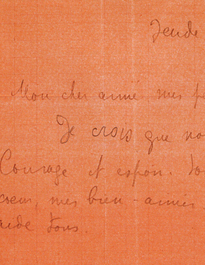 Jeudi
Mon cher aimé mes p
Je crois que no
Courage et espoir. Vo
cœur, mes bien-aimés
aide tous.